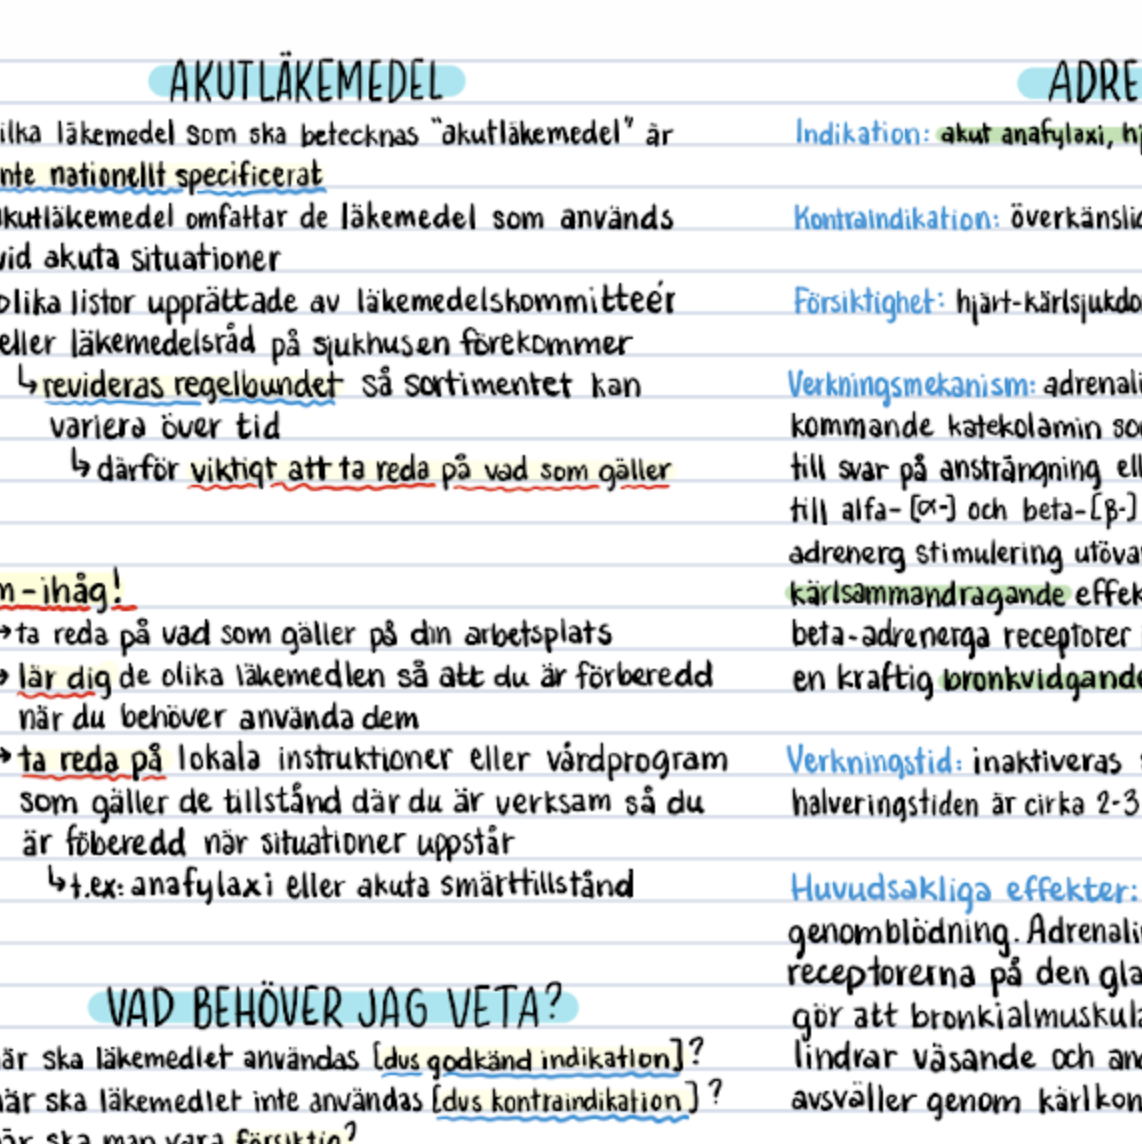 AKUTLÄKEMEDEL
ilka läkemedel som ska betecknas "akutläkemedel" är
nte nationellt specificerat
kutläkemedel omfattar de läkemedel som används
vid akuta situationer
olika listor upprättade av läkemedelskommitteér
eller läkemedelsråd på sjukhusen förekommer
↳ revideras regelbundet så sortimentet kan
variera över tid
↳ därför viktigt att ta reda på vad som gäller
m-ihåg!
→ ta reda på vad som gäller på din arbetsplats
→ lär dig de olika läkemedlen så att du är förberedd
när du behöver använda dem
→ ta reda på lokala instruktioner eller vårdprogram
som gäller de tillstånd där du är verksam så du
är föberedd när situationer uppstår
↳ t.ex: anafylaxi eller akuta smärttillstånd
VAD BEHÖVER JAG VETA?
är ska läkemedlet användas [dvs godkänd indikation]?
när ska läkemedlet inte användas [dvs kontraindikation]?
är ska man vara försiktig?
ADRE
Indikation: akut anafylaxi, h
Kontraindikation: överkänslig
Försiktighet: hjärt-kärlsjukdo
Verkningsmekanism: adrenali
kommande katekolamin so
till svar på ansträngning ell
till alfa-[α-] och beta-[β-]
adrenerg stimulering utöva
kärlsammandragande effek
beta-adrenerga receptorer
en kraftig bronkvidgande
Verkningstid: inaktiveras
halveringstiden är cirka 2-3
Huvudsakliga effekter:
genomblödning. Adrenali
receptorerna på den gla
gör att bronkialmuskula
lindrar väsande och an
avsväller genom kärlkon